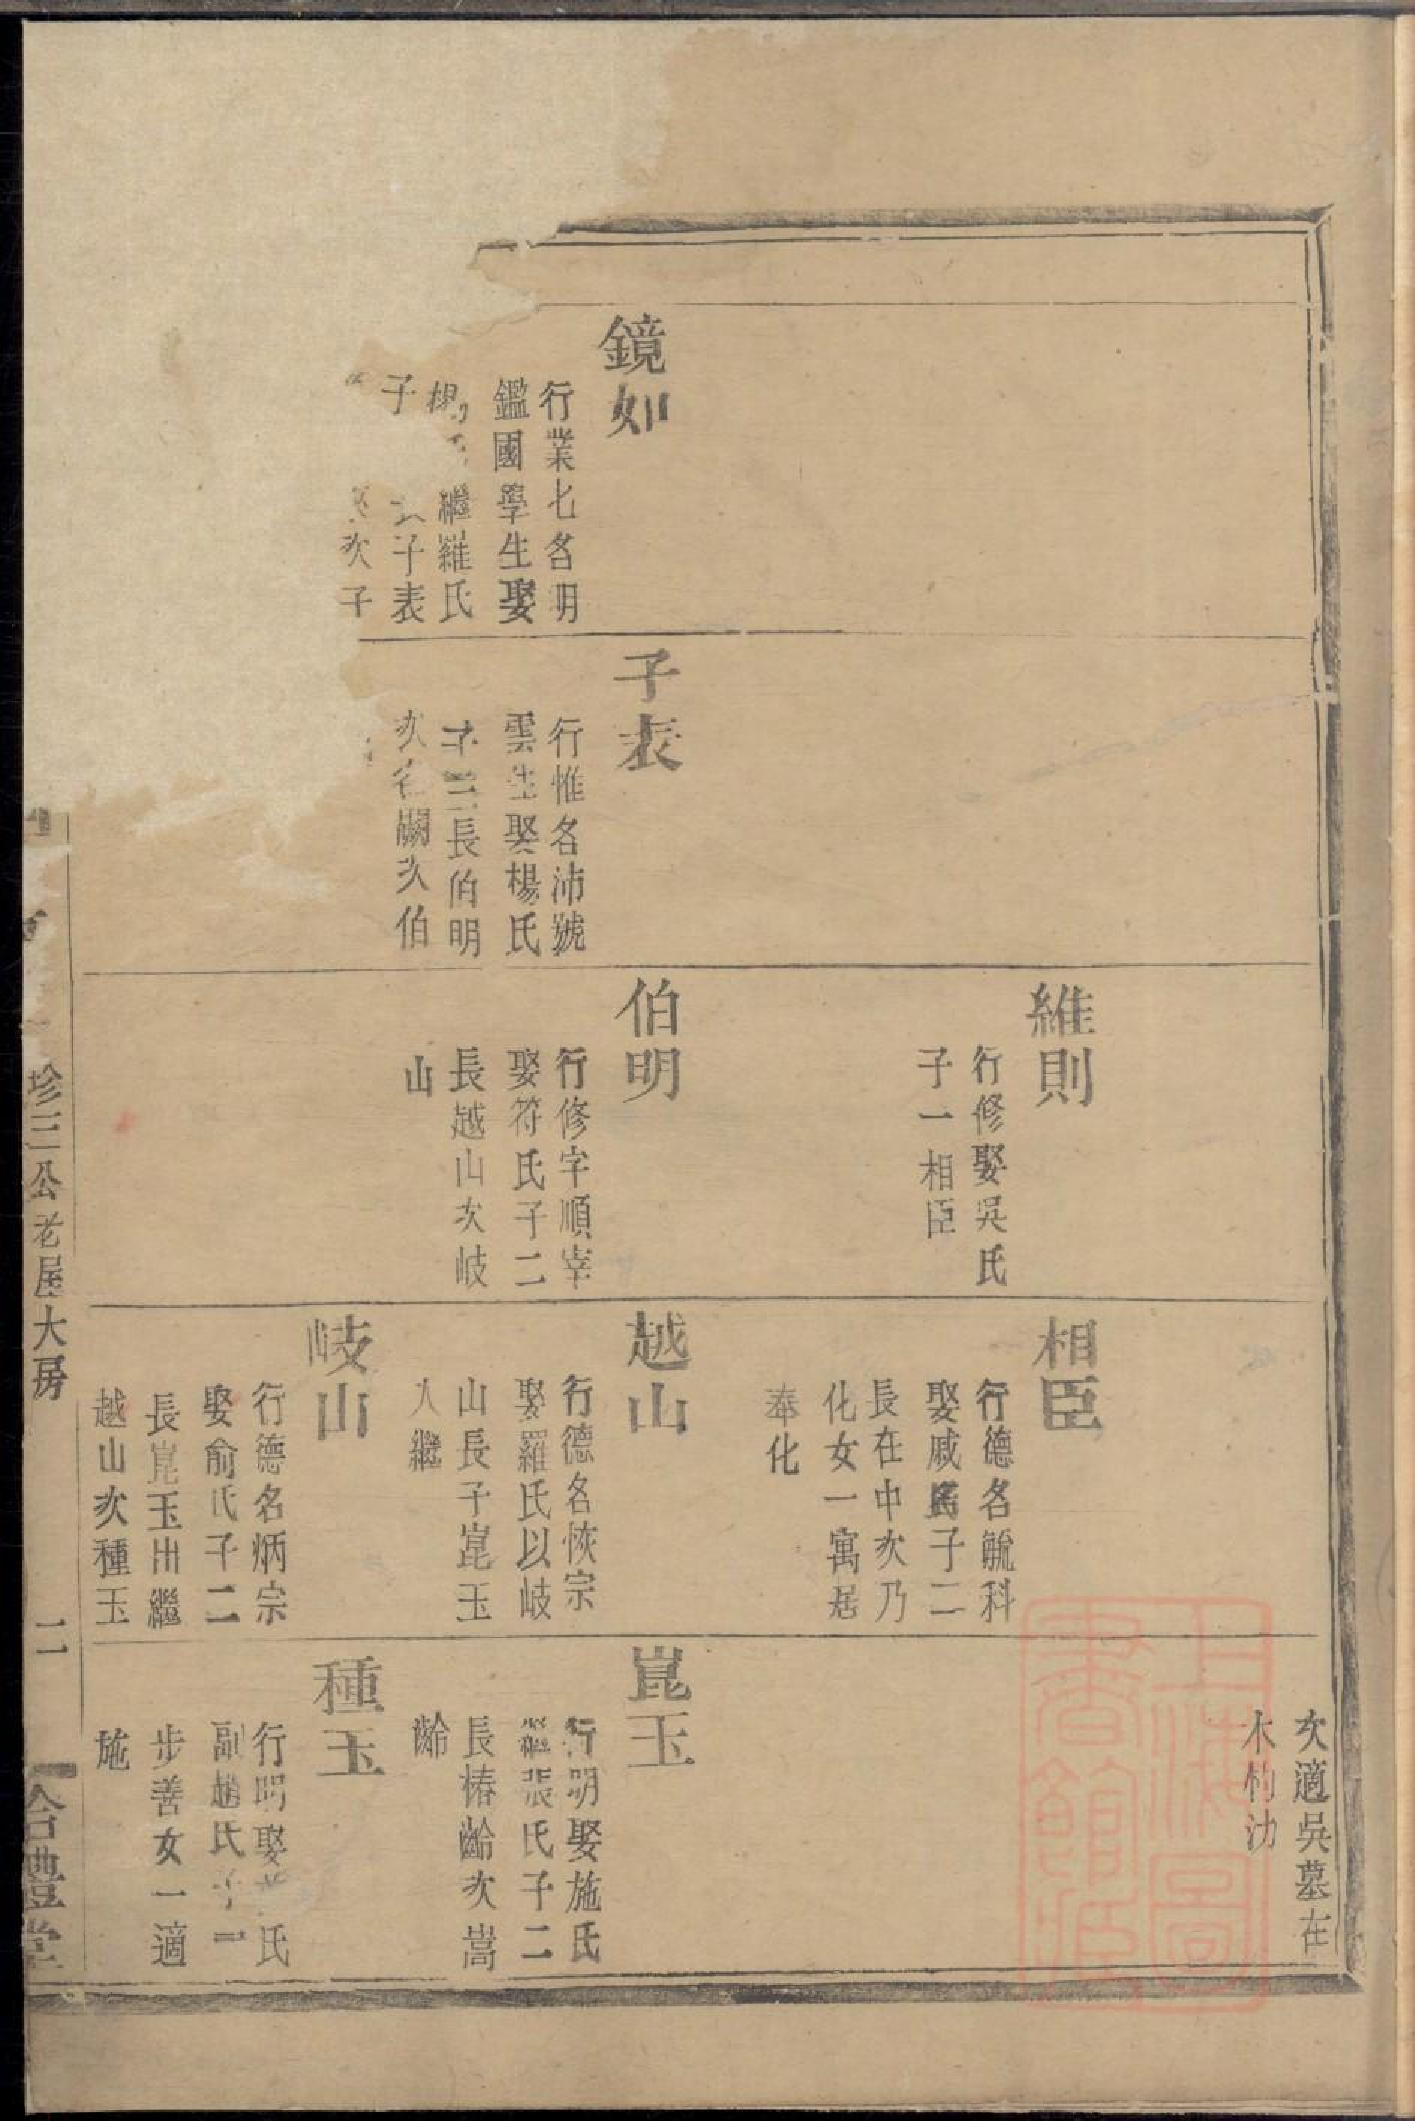 鏡如
行業七名明
鑑國學生娶
楊 繼羅氏
子 子表
次子
子表
行惟名沛號
雲生娶楊氏
子三長伯明
次名嗣次伯
維則
行修娶吳氏
子一相臣
伯明
行修字順宰
娶符氏子二
長越山次岐
山
相臣
行德名毓科
娶戚氏子二
長在中次乃
化女一寓居
奉化
越山
行德名恢宗
娶羅氏以岐
山長子崑玉
入繼
岐山
行德名炳宗
娶俞氏子二
長崑玉出繼
越山次種玉
次適吳墓在
木杓沕
崑玉
行明娶施氏
繼張氏子二
長椿齡次嵩
齡
種玉
行明娶 氏
副趙氏子一
步善女一適
施
珍三公老屋大房
二
合禮堂
上海圖書館藏